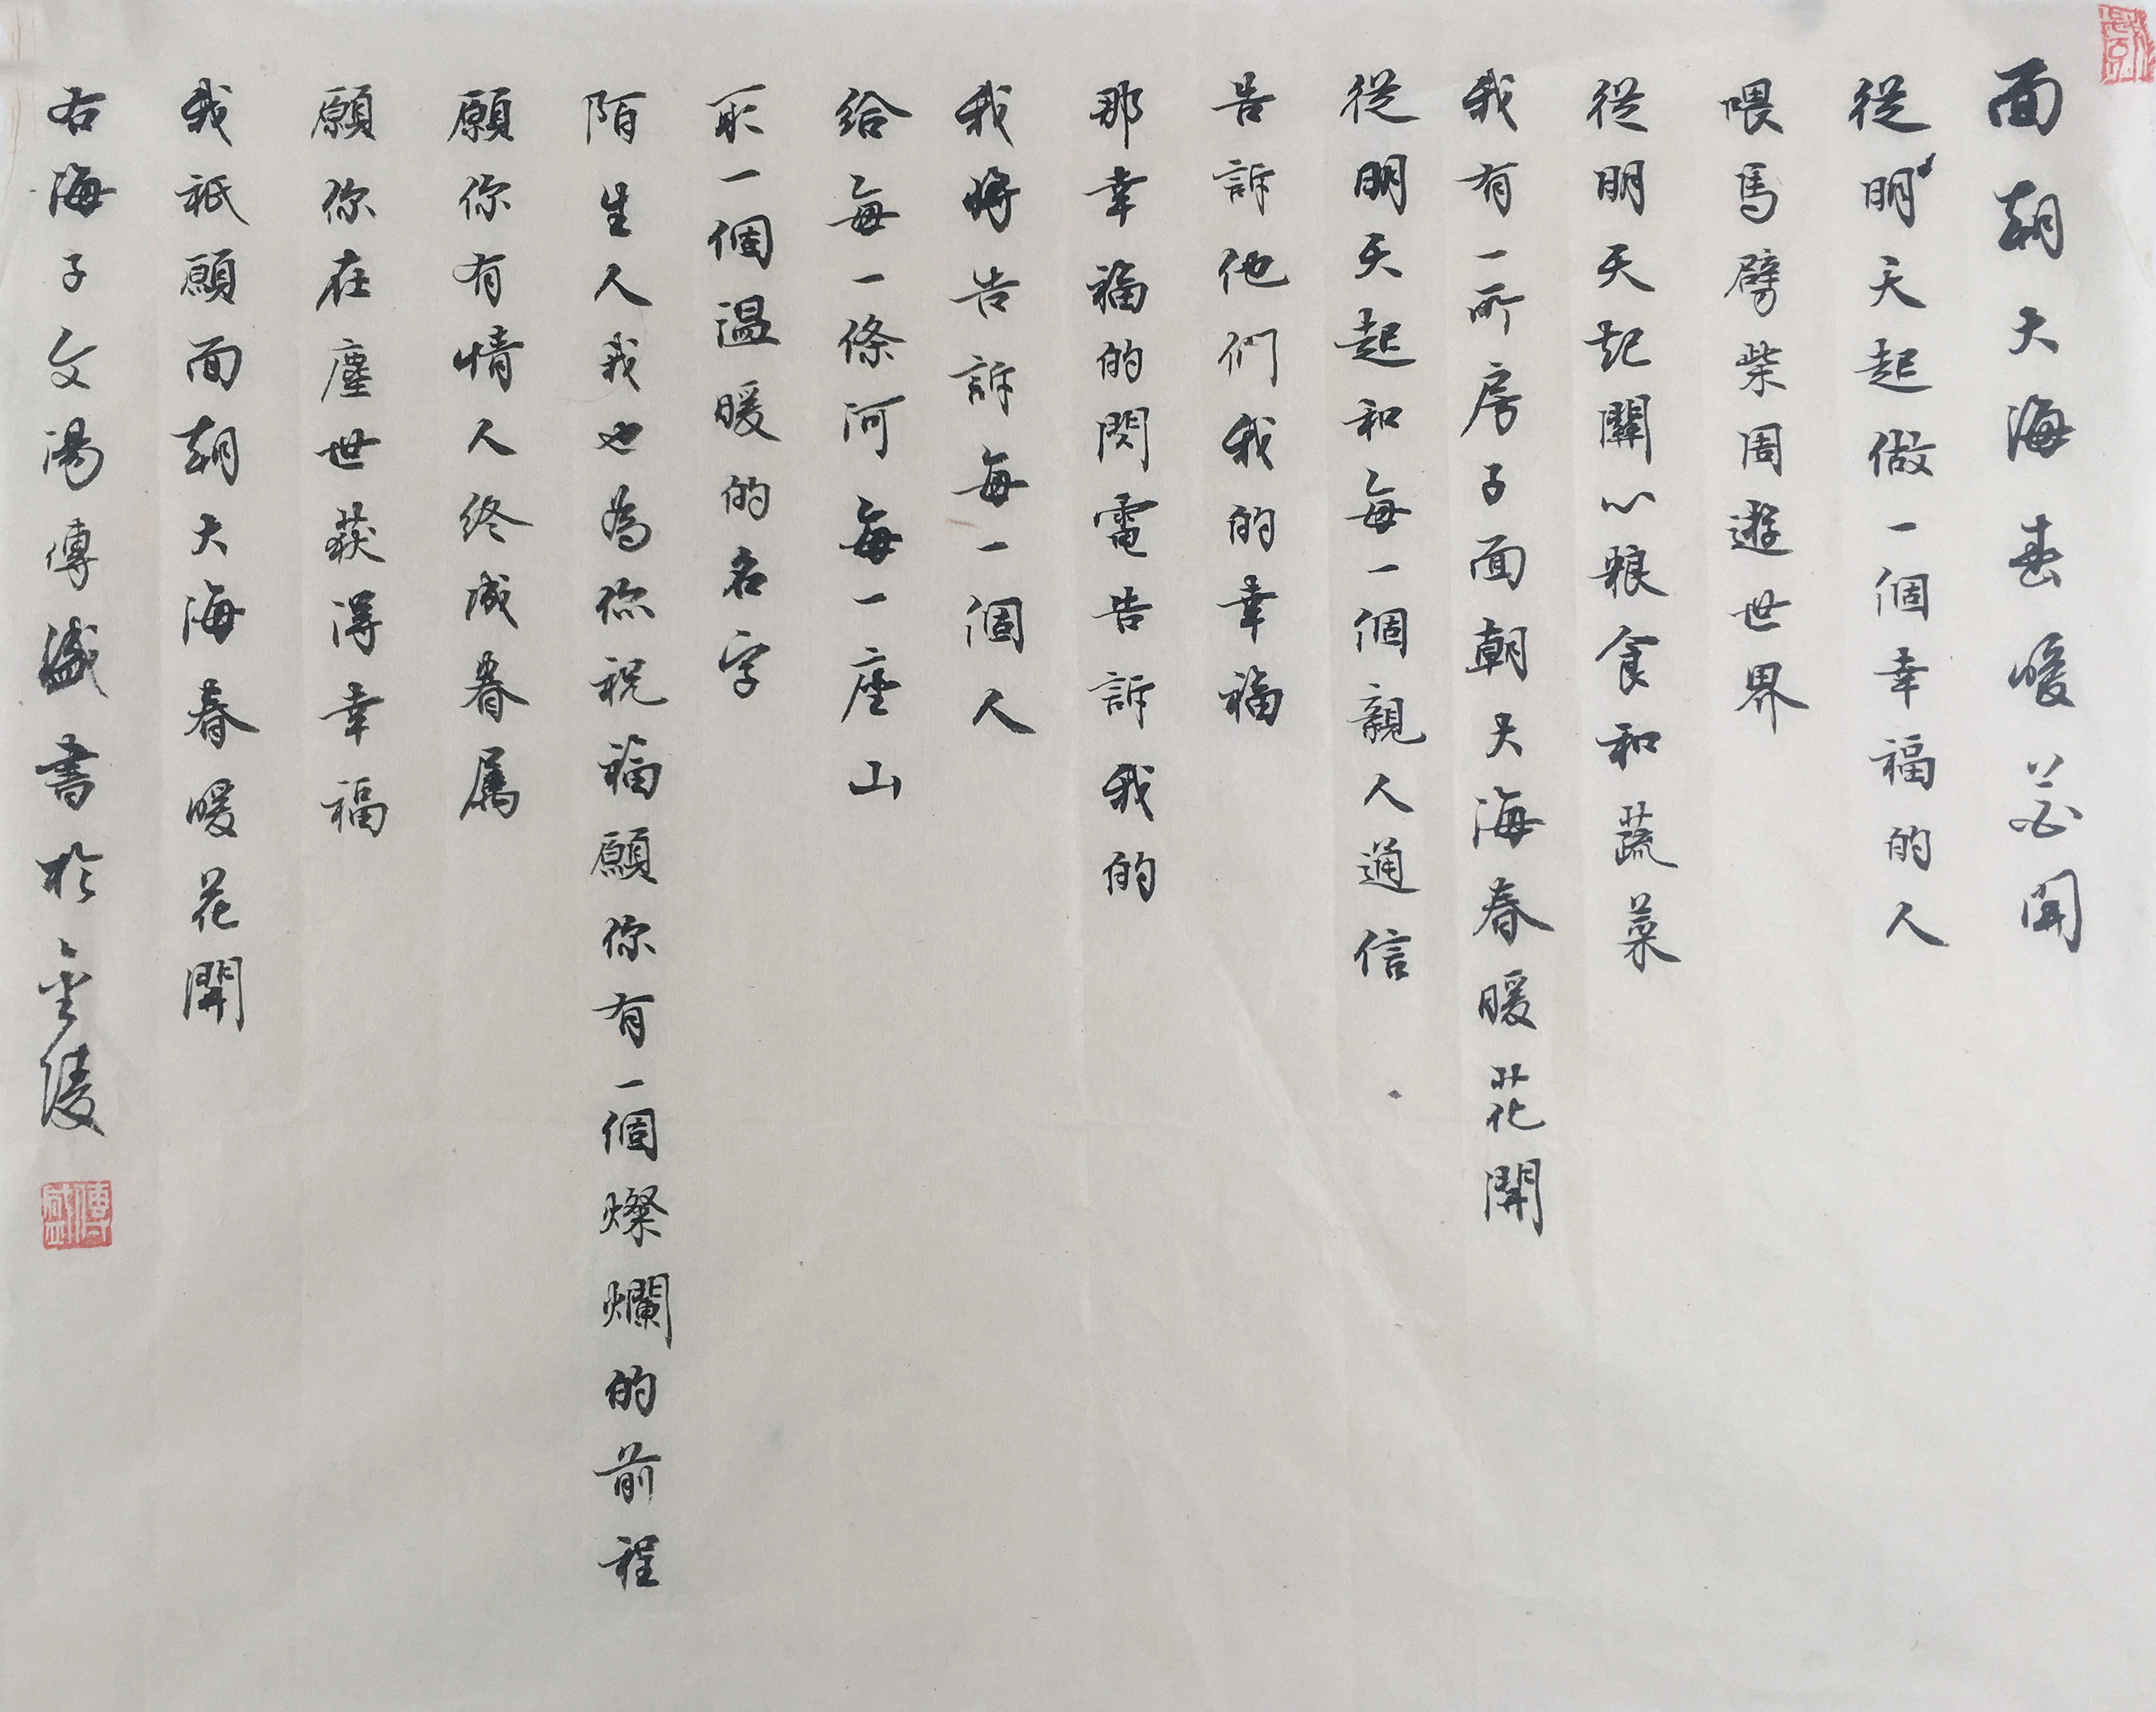 面朝大海春暖花開
從明天起做一個幸福的人
喂馬劈柴周遊世界
從明天起關心粮食和蔬菜
我有一所房子面朝大海春暖花開
從明天起和每一個親人通信
告訴他們我的幸福
那幸福的閃電告訴我的
我將告訴每一個人
給每一條河每一座山
取一個溫暖的名字
陌生人我也為你祝福願你有一個燦爛的前程
願你有情人終成眷屬
願你在塵世获得幸福
我祇願面朝大海春暖花開
右海子文湯傳盛書於金陵
傳盛